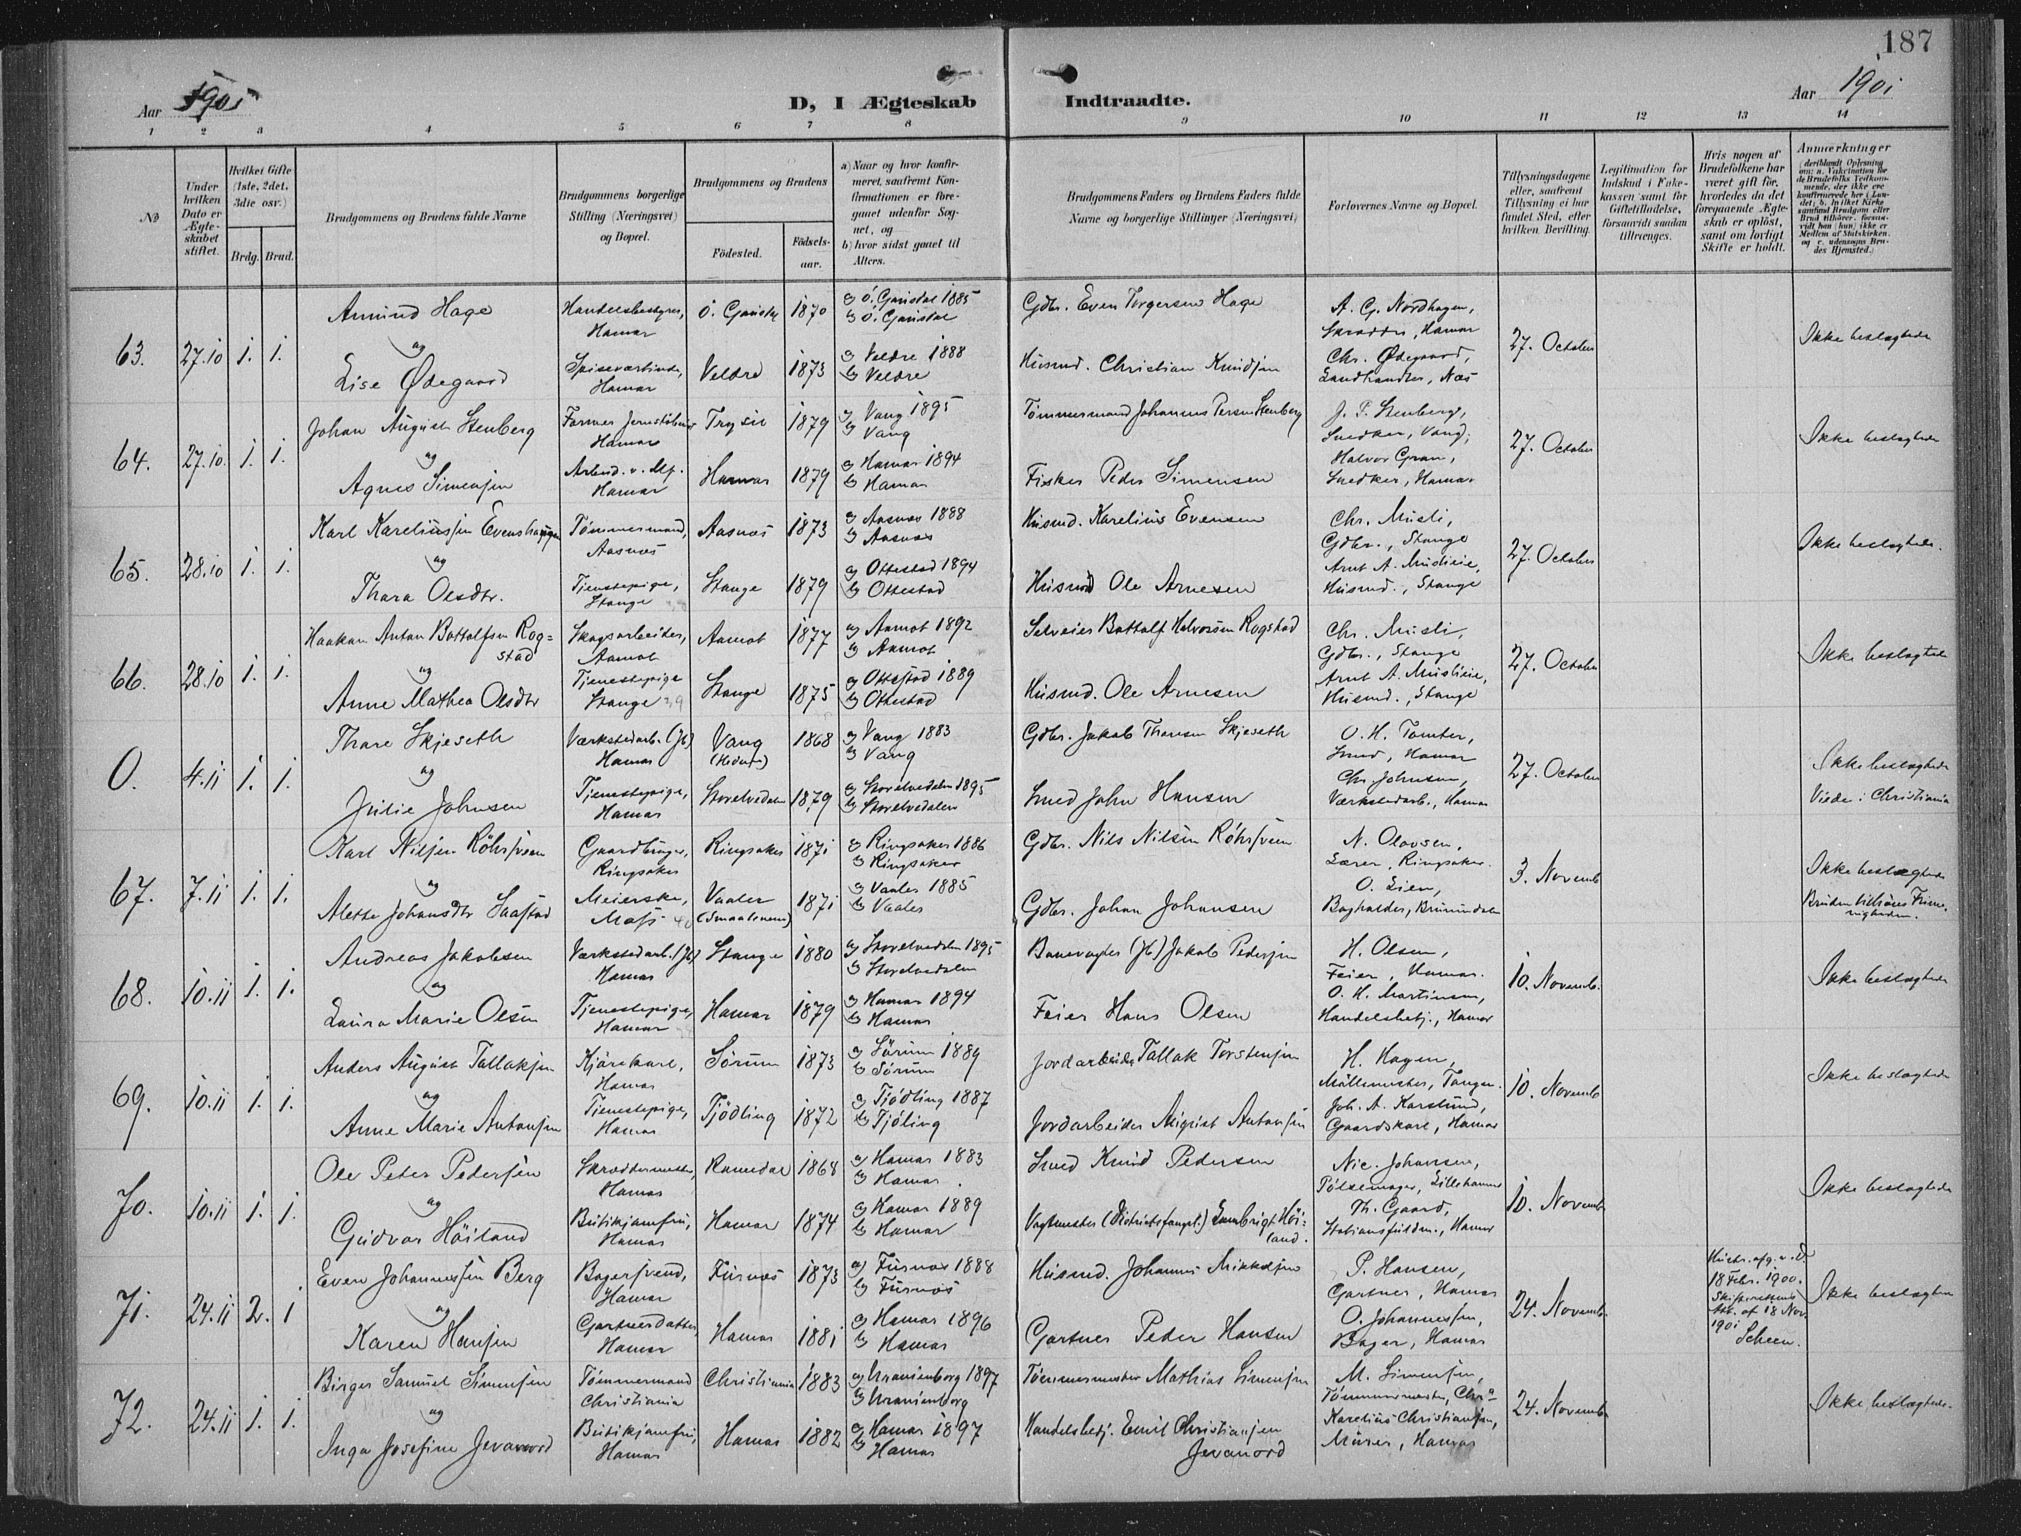 187
Aar 1901
D, I Ægteskab Indtraadte.
Aar 1901
1 2 3 4 5 6 7 8 9 10 11 12 13 14
No
Under hvilken Dato er Ægteskabet stiftet.
Hvilket Gifte (1ste, 2det, 3die osv.)
Brdg. Brud.
Brudgommens og Brudens fulde Navne
Brudgommens borgerlige Stilling (Næringsvei) og Bopæl.
Brudgommens og Brudens
Fødested.
Fødsels-aar.
a) Naar og hvor konfirmeret, saafremt Konfirmationen er foregaaet udenfor Sognet, og
b) hvor sidst gaaet til Alters.
Brudgommens Faders og Brudens Faders fulde Navne og borgerlige Stillinger (Næringsvei)
Forlovernes Navne og Bopæl.
Tillysningsdagene eller, saafremt Tillysning ei har fundet Sted, efter hvilken Bevilling.
Legitimation for Indskud i Enkekassen samt for Giftetilladelse, forsaavidt saadan tiltrænges.
Hvis nogen af Brudefolkene har været gift før, hvorledes da det foregaaende Ægteskab er opløst, samt om lovligt Skifte er holdt.
Anmærkninger
63. 27.10 1. 1. Amund Hage Handelsbestyrer, Hamar Ö. Gausdal 1870 a) Ö. Gausdal 1885 b) Ö. Gausdal Gdbr. Even Torgersen Hage A. G. Nordhagen, Skrædder, Hamar 27. October Ikke beslægtede
og
Lise Ødegaard Spiseværtinde, Hamar Veldre 1873 a) Veldre 1888 b) Veldre Husmd. Christian Knudsen Chr. Ødegaard, Landhandler, Næs
64. 27.10. 1. 1. Johan August Stenberg Former Jernstøberi Hamar Trysil 1879 a) Vang 1895 b) Vang Tømmermand Johannes Persen Stenberg J. P. Stenberg, Snedker, Vang; 27. October Ikke beslægtede
og
Agnes Simensen Hamar Hamar 1879 a) Hamar 1894 b) Hamar Fisker Peder Simensen Halvor Gran, Snedker, Hamar
65. 28.10 1. 1. Karl Kareliussen Evenshaugen Tømmermand, Aasnæs Aasnæs 1873 a) Aasnæs 1888 b) Aasnæs Husmd. Karelius Evensen Chr. Musli, Gdbr., Stange 27. October Ikke beslægtede.
og
Thara Olsdtr. Tjenestepige, Stange Stange 1879 a) Ottestad 1894 b) Ottestad Husmd Ole Arnesen Arnt A. Muslieie, Husmd., Stange
66. 28.10 1. 1. Haakan Anton Bottolfsen Rogstad Skogsarbeider, Aamot Aamot 1877 a) Aamot 1892 b) Aamot Selveier Bottolf Halvorsen Rogstad Chr. Musli, Gdbr., Stange 27. October Ikke beslægtede
og
Anne Mathea Olsdtr Tjenestepige Stange Stange 1875 a) Ottestad 1889 b) Ottestad Husmd. Ole Arnesen Arnt A. Muslieie, Husmd., Stange
0. 4.11 1. 1. Thare Skjeseth Værkstedarb. (Jb) Hamar Vang (Hedm.) 1868 a) Vang 1883 b) Vang Gdbr. Jakob Thoresen Skjeseth O. H. Tomter, Smed, Hamar 27. October Ikke beslægtede Viede i Christiania
og
Julie Johnsen Tjenestepige, Hamar Storelvedalen 1879 a) Storelvedalen 1895 b) Storelvedalen Smed John Hansen Chr. Johnsen, Værkstedarb., Hamar
67. 7.11 1. 1. Karl Nilsen Röhrsveen Gaardbruger, Ringsaker Ringsaker 1871 a) Ringsaker 1886 b) Ringsaker Gdbr. Nils Nilsen Röhrsveen N. Olovsen, Lærer, Ringsaker. 3. Novemb. Ikke beslægtede
og
Alette Johansdtr Saastad Meierske, Moss Vaaler (Smaalenene) 1871 a) Vaaler 1885 b) Vaaler Gdbr. Johan Johansen O. Lien, Bogholder, Brumundalen Bruden tilhører Frimenigheden.
68. 10.11 1. 1. Andreas Jakobsen Værkstedarb. (Jb) Hamar Stange 1880 a) Storelvedalen 1895 b) Storelvedalen Banevogter (Jb) Jakob Pedersen H. Olsen, Feier, Hamar. 10. Novemb. Ikke beslægtede
og
Laura Marie Olsen Tjenestepige, Hamar Hamar 1879 a) Hamar 1894 b) Hamar Feier Hans Olsen O. H. Martinsen, Handelsbetj., Hamar
69. 10.11 1. 1. Anders August Tallaksen Kjørekarl, Hamar Sørum 1873 a) Sörum 1889 b) Sörum Jordarbeider Tallak Torstensen H. Hagen, Møllemester, Tangen. 10. Novemb Ikke beslægtede
og
Anne Marie Antonsen Tjenestepige, Hamar Tjödling 1872 a) Tjödling 1887 b) Tjöling Jordarbeider August Antonsen Joh. A. Karslund, Gaardskarl, Hamar
70. 10.11 1. 1. Ole Peter Pedersen Skræddermester, Hamar Romedal 1868 a) Hamar 1883 b) Hamar. Smed Knud Pedersen Nic. Johansen, Pølsemager, Lillehammer 10. Novemb Ikke beslægtede
og
Gudvor Höiland Butikjomfru, Hamar Hamar 1874 a) Hamar 1889 b) Hamar Vagtmester (Distriktsfængsl.) Lambrigt Höiland. Th. Gaard, Stationsfuldm., Hamar
71. 24.11 2. 1 Even Johannessen Berg Bagersvend, Hamar Furnæs 1873 a) Furnæs 1888 b) Furnæs Husmd. Johannes Mikkelsen P. Hansen, Gartner, Hamar 24. Novemb. Hustr. afg. v. D. 18 Febr. 1900. Skifterettens Att. af 18 Nov. 1901 Scheen. Ikke beslægtede
og
Karen Hansen Gartnerdatter, Hamar Hamar 1881 a) Hamar 1896 b) Hamar Gartner Peder Hansen O. Johannessen, Bager, Hamar
72. 24.11 1. 1. Birger Samuel Simensen Tömmermand Christiania Christiania 1883 a) Uranienborg 1897 b) Uranienborg Tömmermester Mathias Simensen M. Simensen, Tömmermester, Chra 24. Novemb Ikke beslægtede.
og
Inga Josefine Jevanord Butikjomfru, Hamar Hamar 1882 a) Hamar 1897 b) Hamar Handelsbetj. Emil Christiansen Jevanord Karelius Christiansen, Murer, Hamar